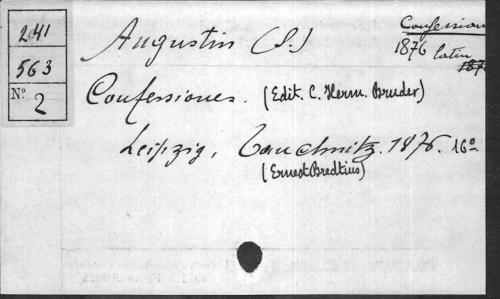 241
563
Nº 2
Augustin (S.)
Confessions
1876 latin
187
Confessiones. (Edit. C. Herm. Bruder)
Leipzig, Tauchnitz. 1876. 16º
(Ernest Bredtius)